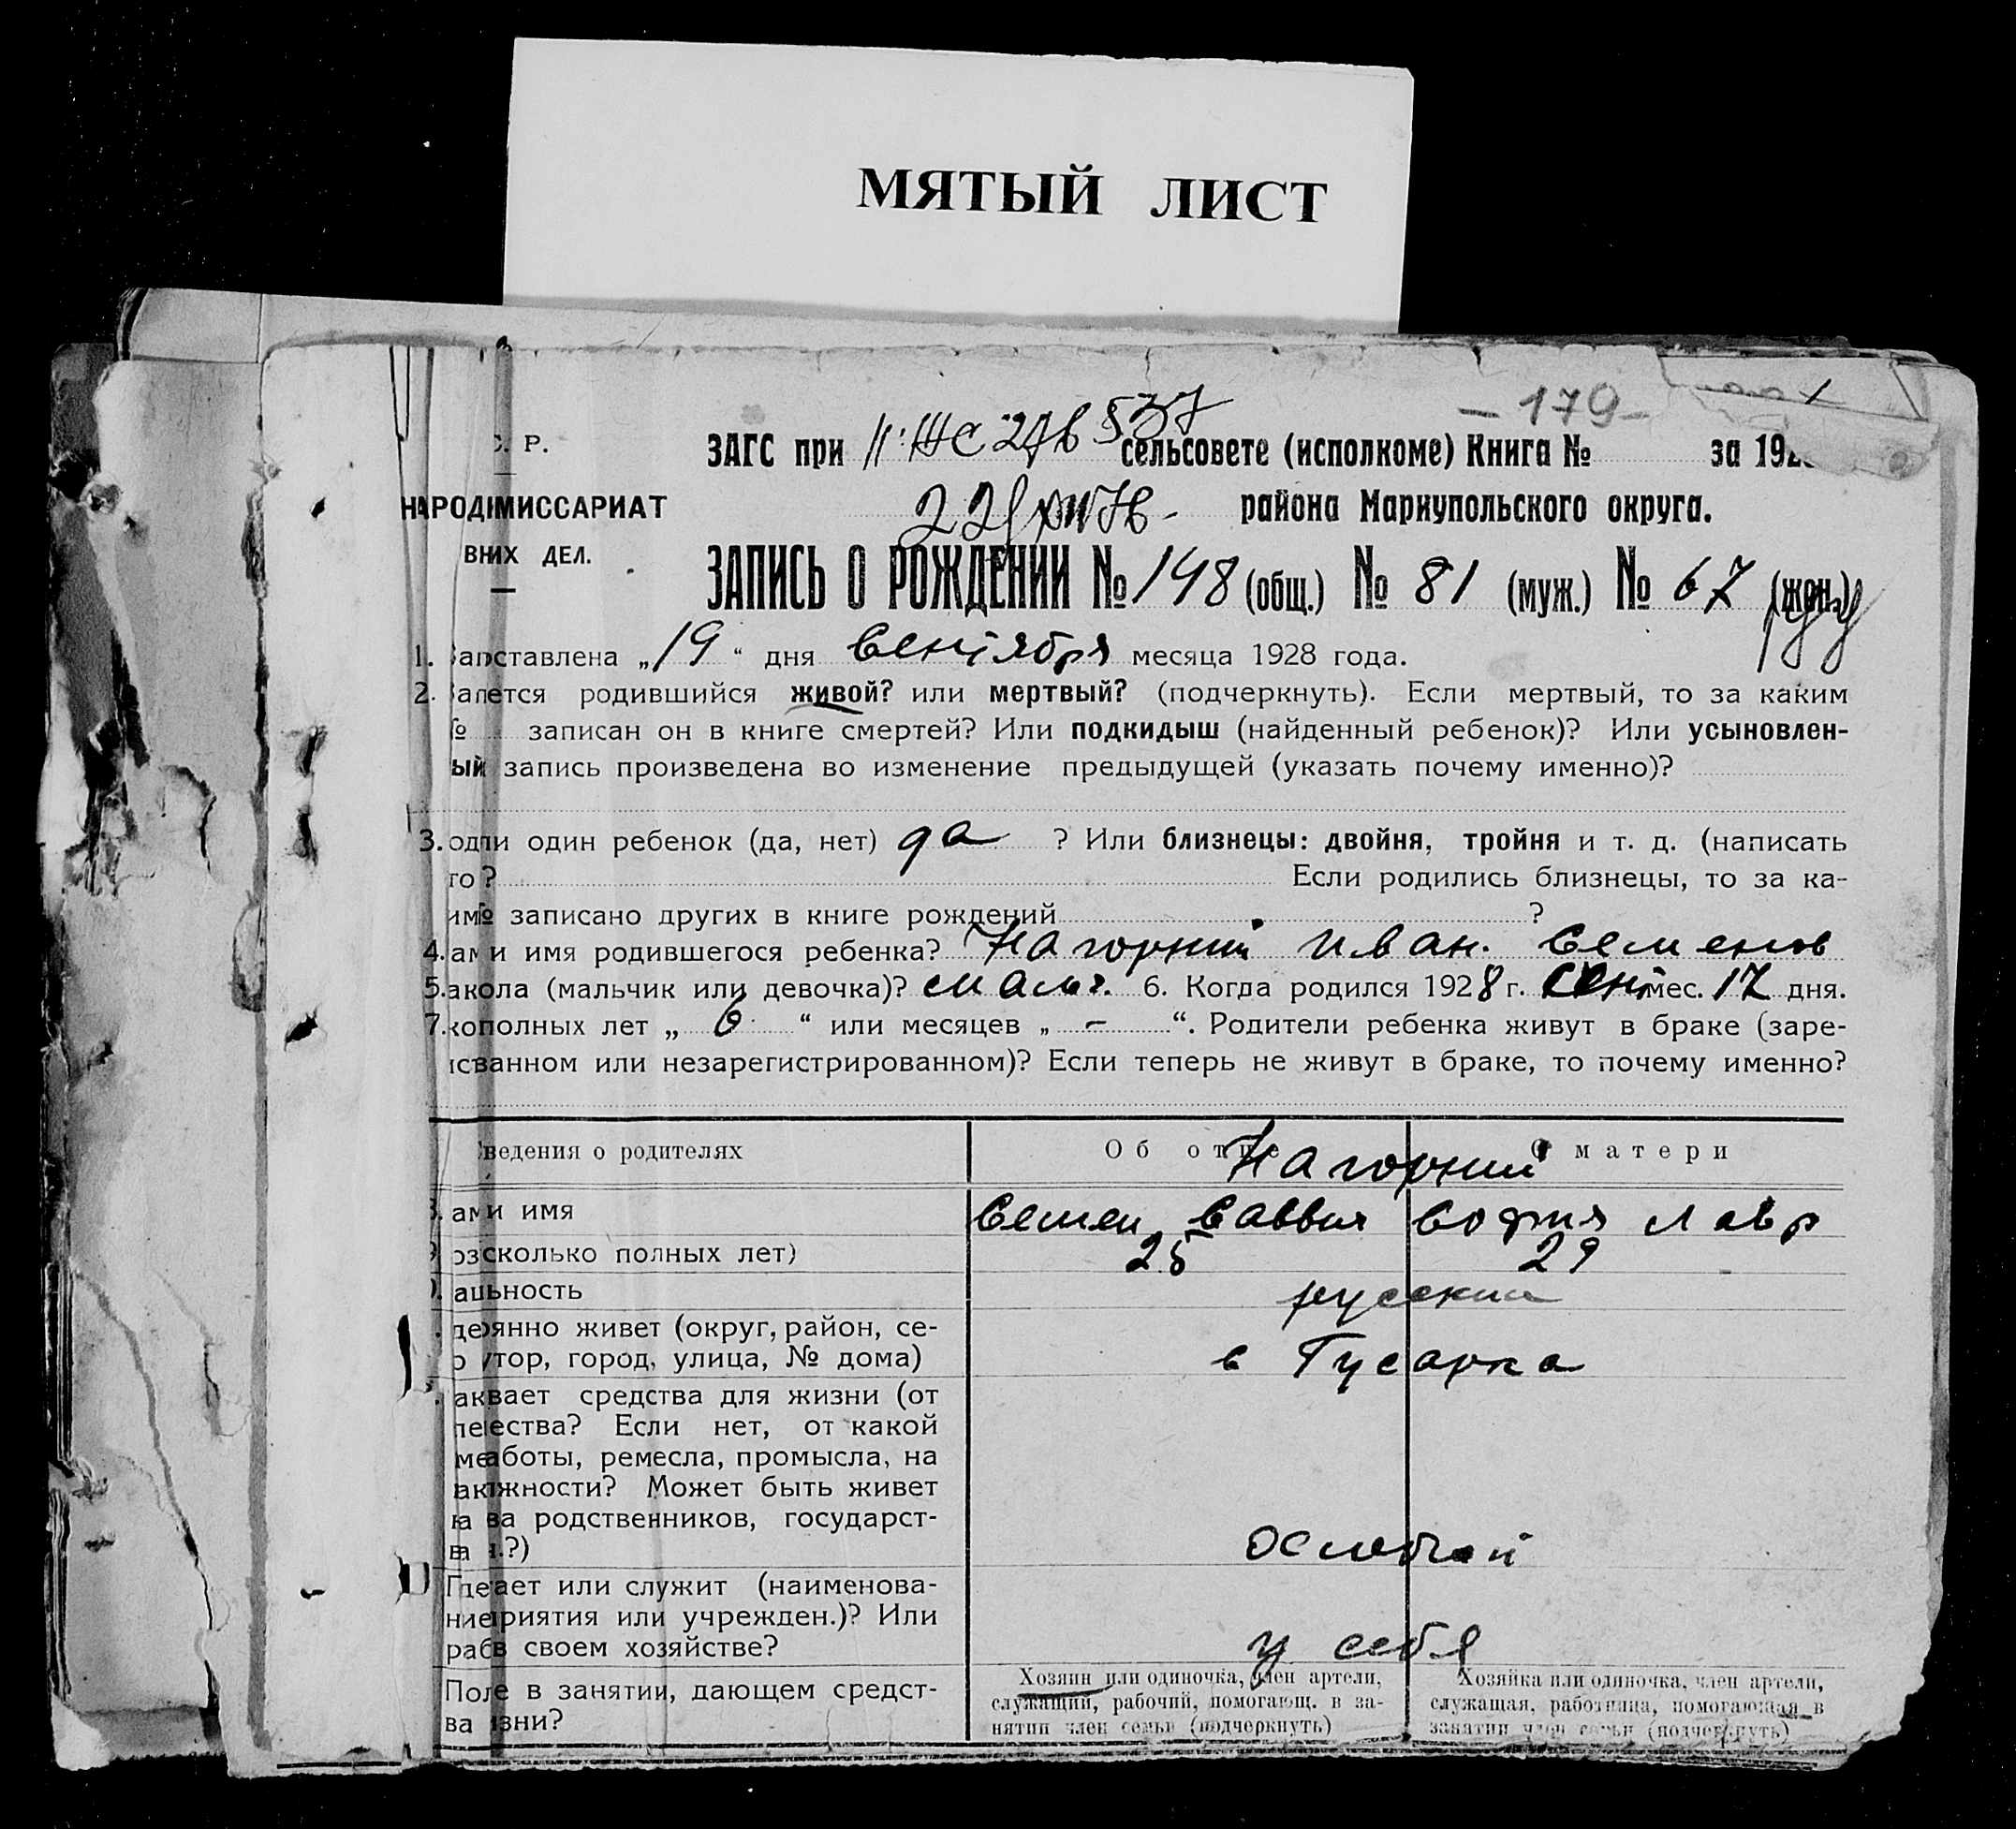 МЯТЫЙ ЛИСТ
- 179 -
С. Р.
ЗАГС при сельсовете (исполкоме) Книга № за 192
НАРОД МИССАРИАТ
района Мариупольского округа.
ВНИХ ДЕЛ.
ЗАПИСЬ О РОЖДЕНИИ № 148 (общ.) № 81 (муж.) № 67 (жен.)
1. ставлена „19“ дня Сентября месяца 1928 года.
2. ется родившийся живой? или мертвый? (подчеркнуть). Если мертвый, то за каким
№ записан он в книге смертей? Или подкидыш (найденный ребенок)? Или усыновлен-
ый запись произведена во изменение предыдущей (указать почему именно)?
3. один ребенок (да, нет) да ? Или близнецы: двойня, тройня и т. д. (написать
го? Если родились близнецы, то за ка-
им № записано других в книге рождений ?
4. и имя родившегося ребенка? Нагорний Иван Семенов
5. ола (мальчик или девочка)? мальч. 6. Когда родился 1928 г. Сент мес. 17 дня.
7. полных лет „ 6 “ или месяцев „ - “. Родители ребенка живут в браке (заре-
ванном или незарегистрированном)? Если теперь не живут в браке, то почему именно?
ведения о родителях Об отце О матери
Нагорний
и имя Семен Саввич София Лавр
сколько полных лет) 25 29
ьность русский
янно живет (округ, район, се-
тор, город, улица, № дома) с Гусарка
вает средства для жизни (от
ества? Если нет, от какой
аботы, ремесла, промысла, на
жности? Может быть живет
ва родственников, государст-
.?)
Где ает или служит (наименова-
ние риятия или учрежден.)? Или
раб в своем хозяйстве? у себя
Пол е в занятии, дающем средст-
ва зни?
Хозяин или одиночка, член артели,
служащий, рабочий, помогающ. в за-
нятии член семьи (подчеркнуть)
Хозяйка или одиночка, член артели,
служащая, работница, помогающая в
занятии член семьи (подчеркнуть)